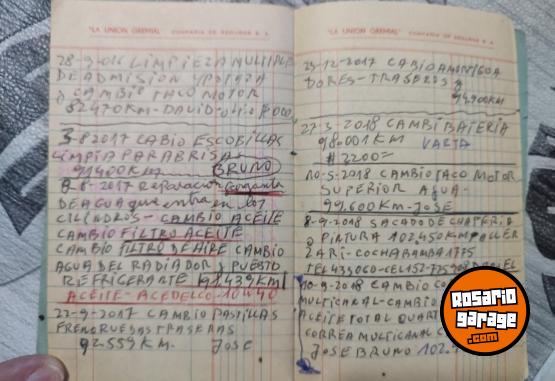 "LA UNION GREMIAL" COMPAÑIA DE SEGUROS S. A.
28-9-2016 LIMPIEZA MULTIPLE
DE ADMISION
CAMBIO TACO MOTOR
82470KM-DAVID
3-8-2017 CABIO ESCOBILLAS
LIMPIA PARABRISAS
91400KM BRUNO
8-8-2017 Reparacion
DE AGUA que entra en los
CILINDROS-CAMBIO ACEITE
CAMBIO FILTRO ACEITE
CAMBIO FILTRO DE AIRE CAMBIO
AGUA DEL RADIADOR y PUESTO
REFRIGERANTE 91.439KM
ACEITE-ACEDELCO 10W40
22-9-2017 CAMBIO PASTILLAS
FRENO RUEDAS TRASERAS
92.559KM. JOSE
"LA UNION GREMIAL" COMPAÑIA DE SEGUROS S. A.
23-12-2017 CABIO AMORTIGUA
DORES-TRASEROS
94.900KM
27-3-2018 CAMBI BATERIA
98.001KM VARTA
$2200=
10-5-2018 CAMBIO TACO MOTOR
SUPERIOR AGUA-
99.600KM-JOSE
8-9-2018 SACADO DE CHAPERIA
y PINTURA 102.450KM TALLER
ZARI-COCHABAMBA 1775
10-9-2018 CAMBIO
MULTICANAL-CAMBIO
ACEITE TOTAL QUART
CORREA MULTICANAL
JOSE BRUNO 102.
Rosario
garage
.com